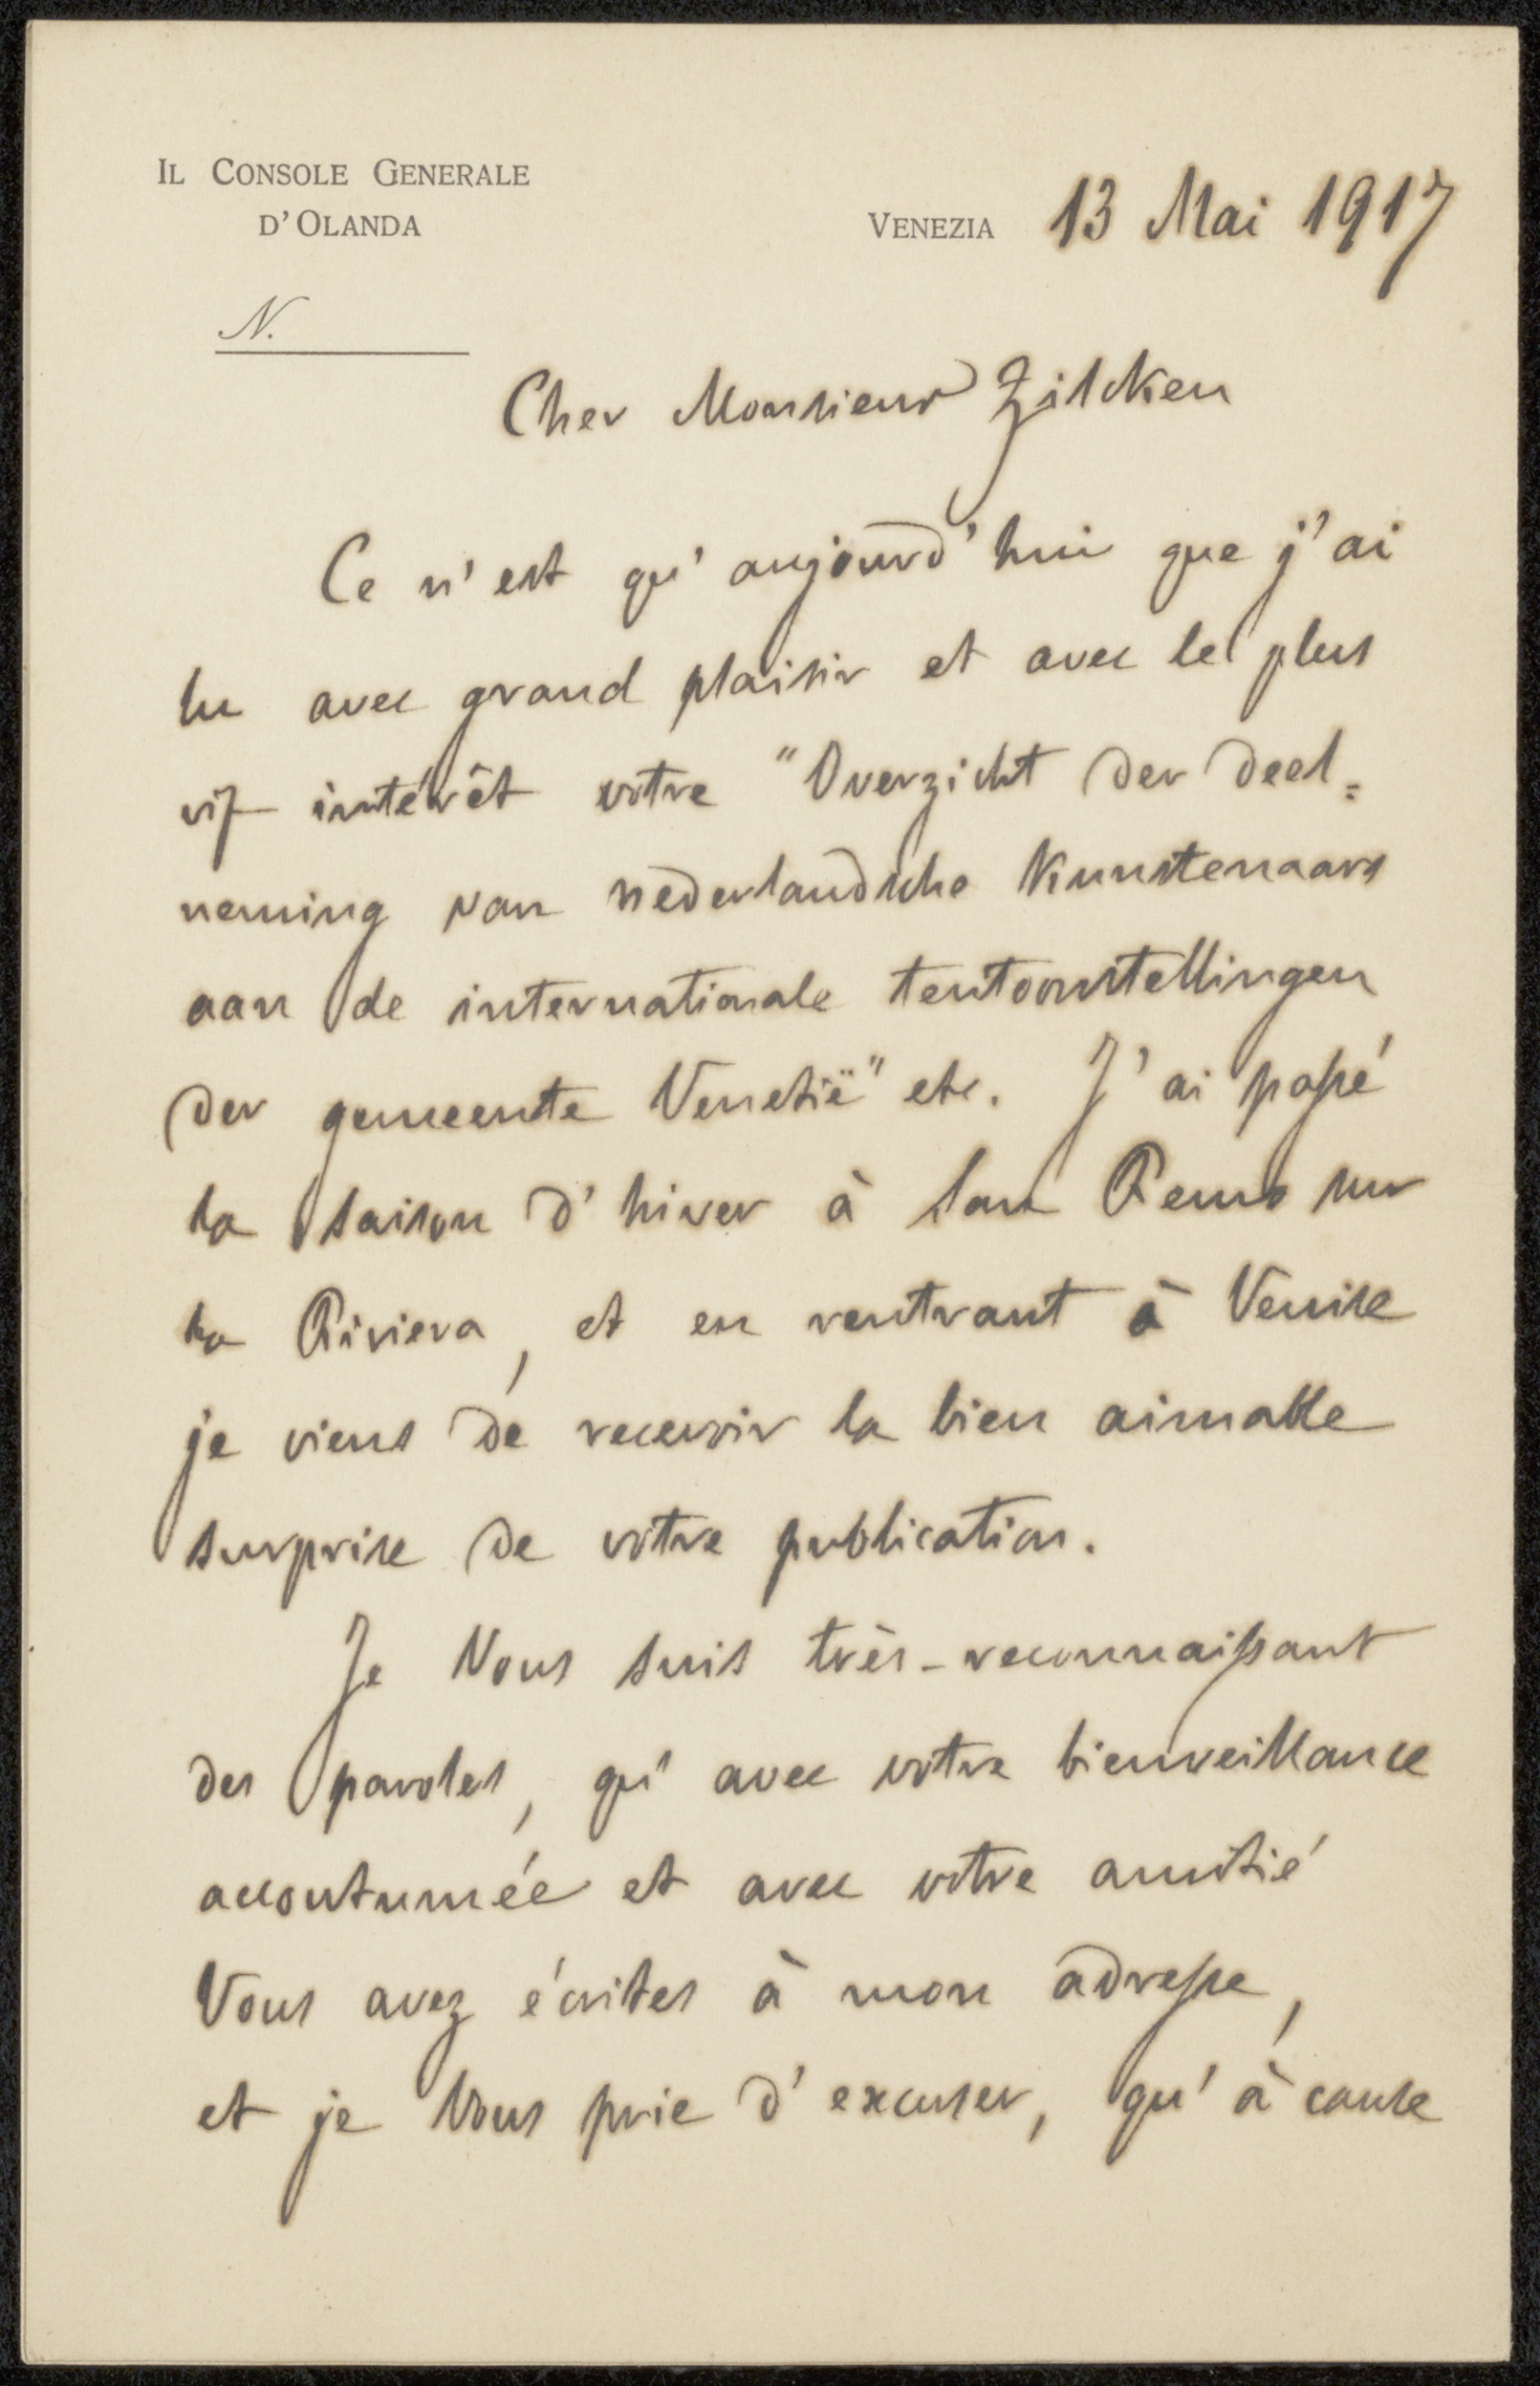 IL CONSOLE GENERALE
D'OLANDA
VENEZIA 13 Mai 1917
N.
Cher Monsieur Zilcken
Ce n'est qu'aujourd'hui que j'ai
lu avec grand plaisir et avec le plus
vif intérêt votre "Overzicht der deel=
neming van nederlandsche Kunstenaars
aan de internationale tentoonstellingen
der gemeente Venetië" etc. J'ai passé
la saison d'hiver à San Remo sur
la Riviera, et en rentrant à Venise
je viens de recevoir la bien aimable
surprise de votre publication.
Je Vous suis très-reconnaissant
des paroles, qu'avec votre bienveillance
accoutumée et avec votre amitié
Vous avez écrites à mon adresse,
et je Vous prie d'excuser, qu'à cause